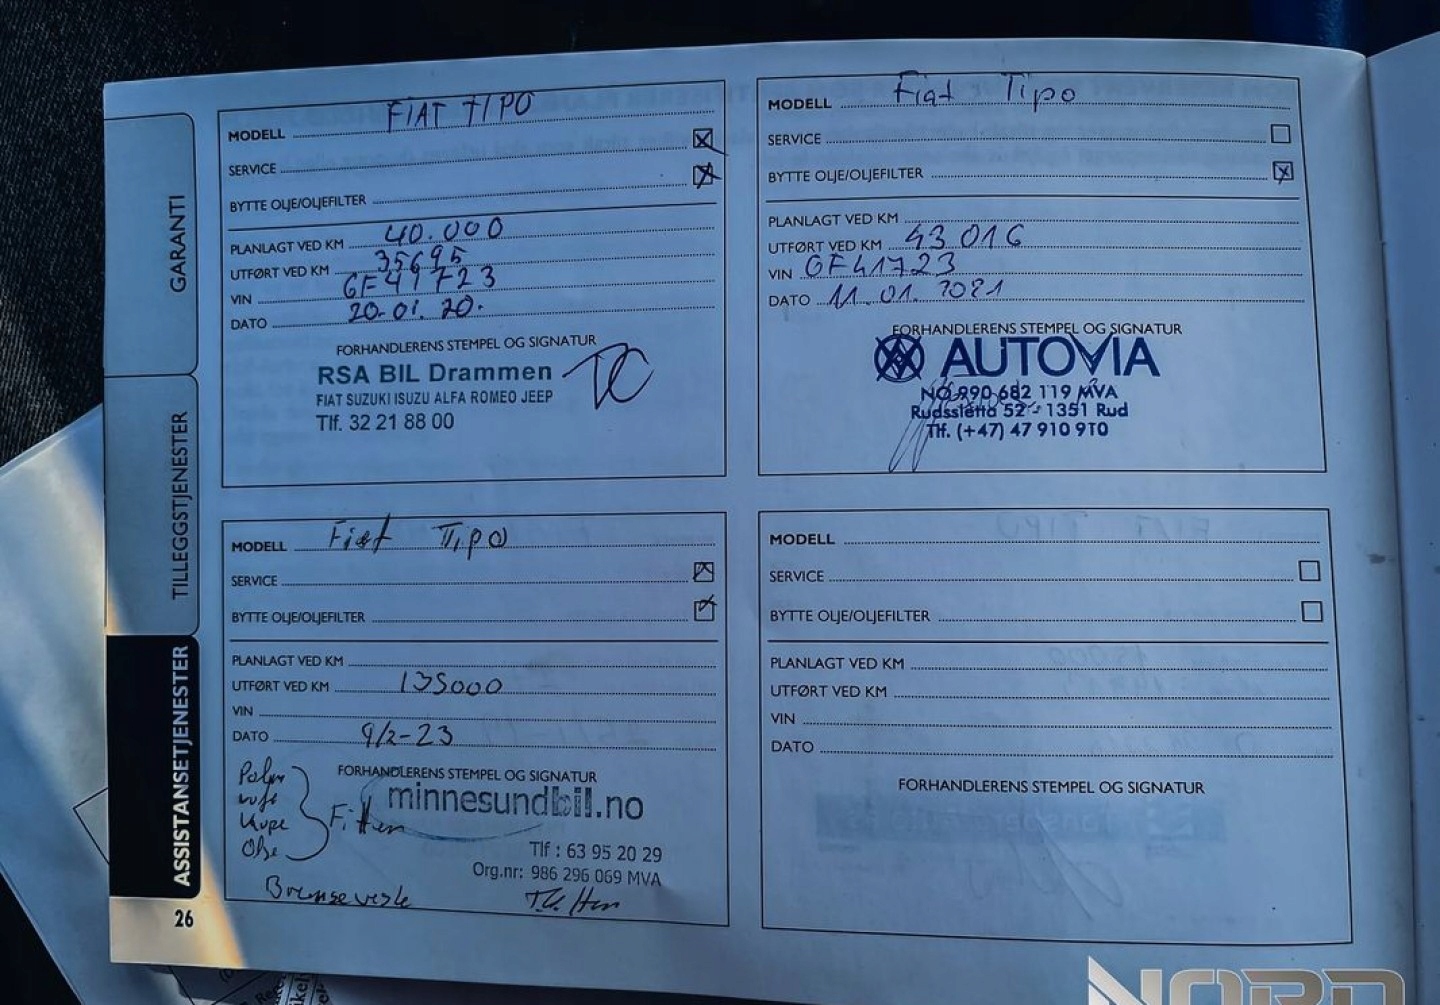 GARANTI
TILLEGGSTJENESTER
ASSISTANSETJENESTER
26
MODELL FIAT TIPO
SERVICE
BYTTE OLJE/OLJEFILTER
PLANLAGT VED KM 40.000
UTFØRT VED KM 35695
VIN GF41723
DATO 20-01.20.
FORHANDLERENS STEMPEL OG SIGNATUR
RSA BIL Drammen
FIAT SUZUKI ISUZU ALFA ROMEO JEEP
Tlf. 32 21 88 00
MODELL Fiat Tipo
SERVICE
BYTTE OLJE/OLJEFILTER
PLANLAGT VED KM
UTFØRT VED KM 43 016
VIN GF41723
DATO 11.01.2021
FORHANDLERENS STEMPEL OG SIGNATUR
AUTOVIA
NO 990 682 119 MVA
Rudssletta 52 - 1351 Rud
Tlf. (+47) 47 910 910
MODELL Fiat Tipo
SERVICE
BYTTE OLJE/OLJEFILTER
PLANLAGT VED KM
UTFØRT VED KM 135000
VIN
DATO 9/2-23
FORHANDLERENS STEMPEL OG SIGNATUR
minnesundbil.no
Tlf : 63 95 20 29
Org.nr: 986 296 069 MVA
luft
Kupe
Olje
Bremseveske
MODELL
SERVICE
BYTTE OLJE/OLJEFILTER
PLANLAGT VED KM
UTFØRT VED KM
VIN
DATO
FORHANDLERENS STEMPEL OG SIGNATUR
NORD